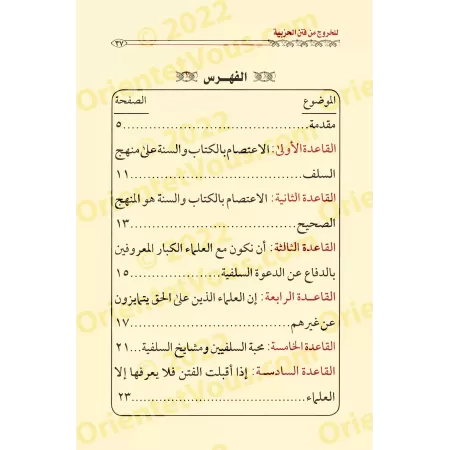 للخروج من فتن الحزبية
٢٧
الفهرس
الموضوع الصفحة
مقدمة ٥
القاعدة الأولى: الاعتصام بالكتاب والسنة على منهج
السلف ١١
القاعدة الثانية: الاعتصام بالكتاب والسنة هو المنهج
الصحيح ١٣
القاعدة الثالثة: أن نكون مع العلماء الكبار المعروفين
بالدفاع عن الدعوة السلفية ١٥
القاعدة الرابعة: إن العلماء الذين على الحق يتميزون
عن غيرهم ١٧
القاعدة الخامسة: محبة السلفيين ومشايخ السلفية ٢١
القاعدة السادسة: إذا أقبلت الفتن فلا يعرفها إلا
العلماء ٢٣
© 2022
OrientetVous.com